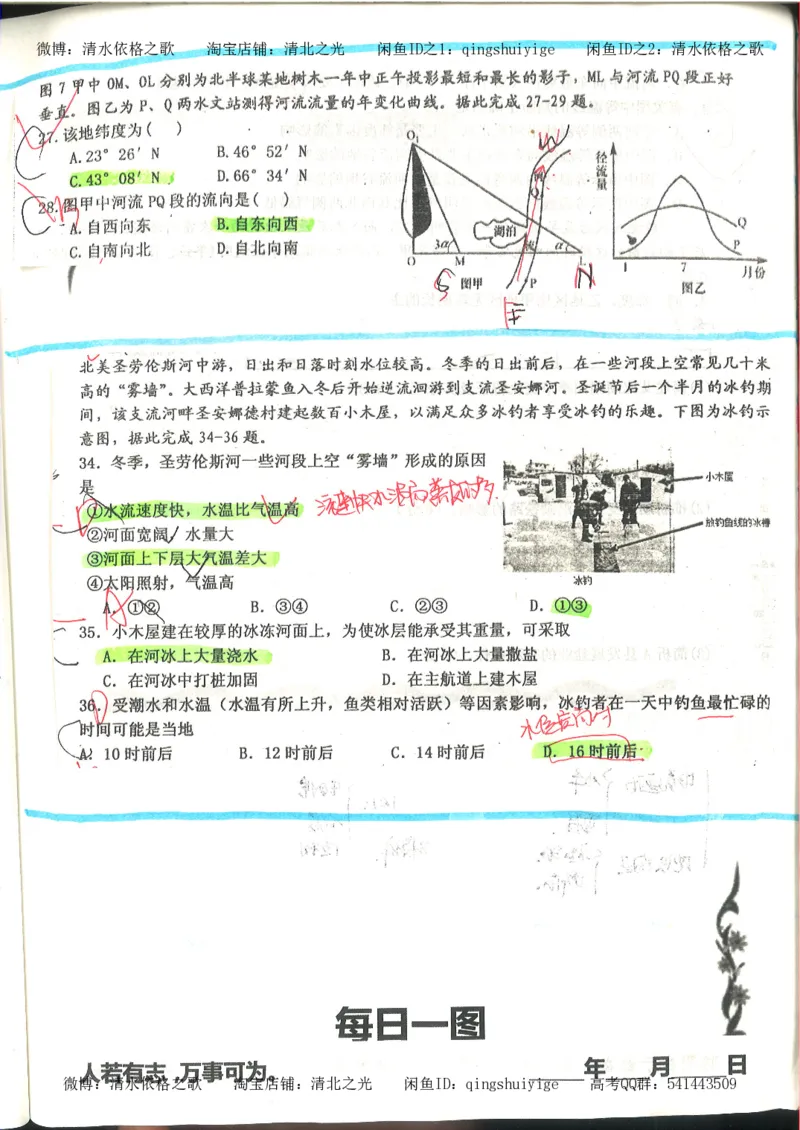 微博：清水依格之歌 淘宝店铺：清北之光 闲鱼ID之1：qingshuiyige 闲鱼ID之2：清水依格之歌
图7甲中OM、OL分别为北半球某地树木一年中正午投影最短和最长的影子，ML与河流PQ段正好
垂直。图乙为P、Q两水文站测得河流流量的年变化曲线。据此完成27-29题。
27.该地纬度为( )
A.23°26′N B.46°52′N
C.43°08′N D.66°34′N
28.图甲中河流PQ段的流向是(
A.自西向东 B.自东向西
C.自南向北 D.自北向南
O₁
W
Q
湖泊
3α α
O M L
S 图甲 P N
E
径流量
Q
P
1 7 月份
图乙
北美圣劳伦斯河中游，日出和日落时刻水位较高。冬季的日出前后，在一些河段上空常见几十米
高的“雾墙”。大西洋普拉蒙鱼入冬后开始逆流洄游到支流圣安娜河。圣诞节后一个半月的冰钓期
间，该支流河畔圣安娜德村建起数百小木屋，以满足众多冰钓者享受冰钓的乐趣。下图为冰钓示
意图，据此完成34-36题。
34．冬季，圣劳伦斯河一些河段上空“雾墙”形成的原因
是
①水流速度快，水温比气温高
②河面宽阔，水量大
③河面上下层大气温差大
④太阳照射，气温高
A．①② B．③④ C．②③ D．①③
小木屋
放钓鱼线的冰槽
冰钓
35．小木屋建在较厚的冰冻河面上，为使冰层能承受其重量，可采取
A．在河冰上大量浇水 B．在河冰上大量撒盐
C．在河冰中打桩加固 D．在主航道上建木屋
36．受潮水和水温（水温有所上升，鱼类相对活跃）等因素影响，冰钓者在一天中钓鱼最忙碌的
时间可能是当地
A．10时前后 B．12时前后 C．14时前后 D．16时前后
每日一图
人若有志,万事可为。 年 月 日
微博：清水依格之歌 淘宝店铺：清北之光 闲鱼ID：qingshuiyige 高考QQ群：541443509